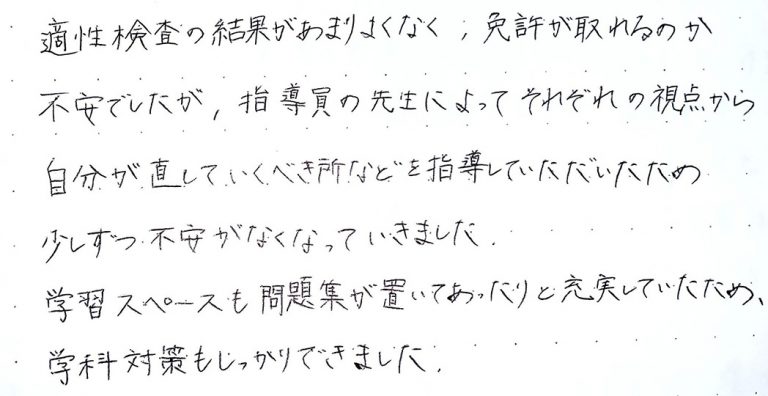 適性検査の結果があまりよくなく，免許が取れるのか
不安でしたが，指導員の先生によってそれぞれの視点から
自分が直していくべき所などを指導していただいたため
少しずつ不安がなくなっていきました．
学習スペースも問題集が置いてあったりと充実していたため、
学科対策もしっかりできました．